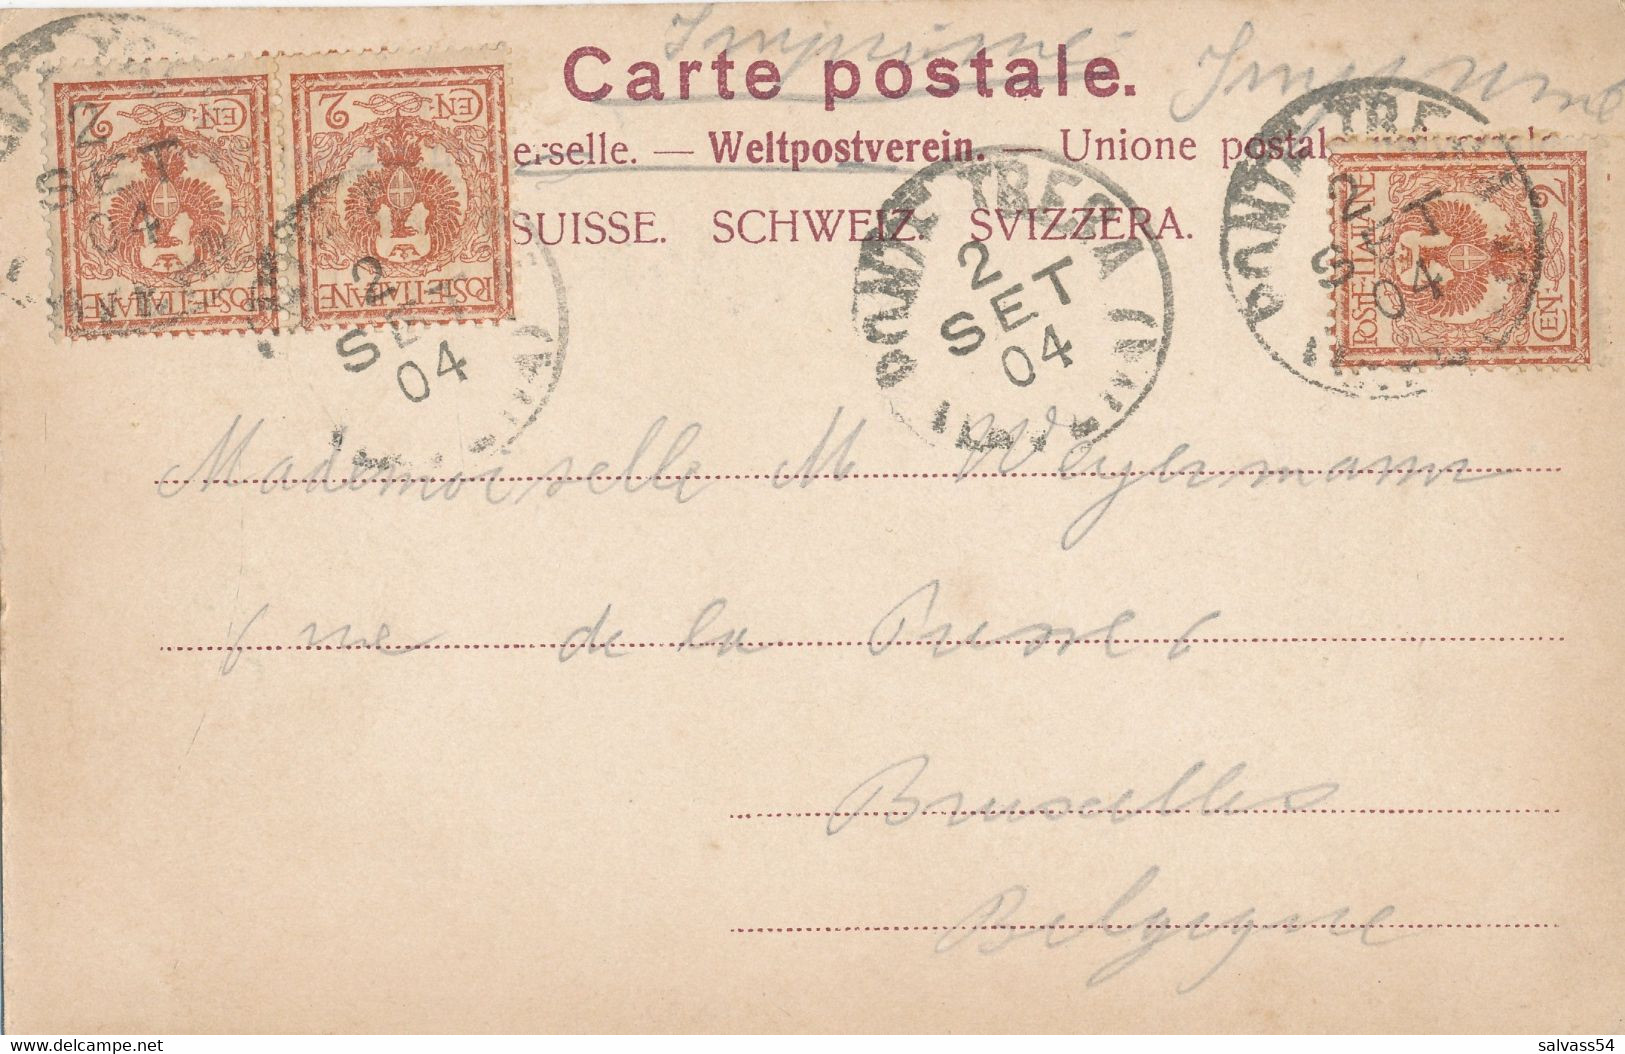 Imprimé Imprimé
Carte postale.
erselle. — Weltpostverein. — Unione postal
SUISSE. SCHWEIZ. SVIZZERA.
CEN 2
POSTE ITALIANE
CEN 2
POSTE ITALIANE
CEN 2
POSTE ITALIANE
2
SET
04
2
SET
04
PONTE TRESA
2
SET
04
PONTE TRESA
2
SET
04
Mademoiselle M Weyermann
rue de la
Bruxelles
Belgique
salvass54
delcampe.net